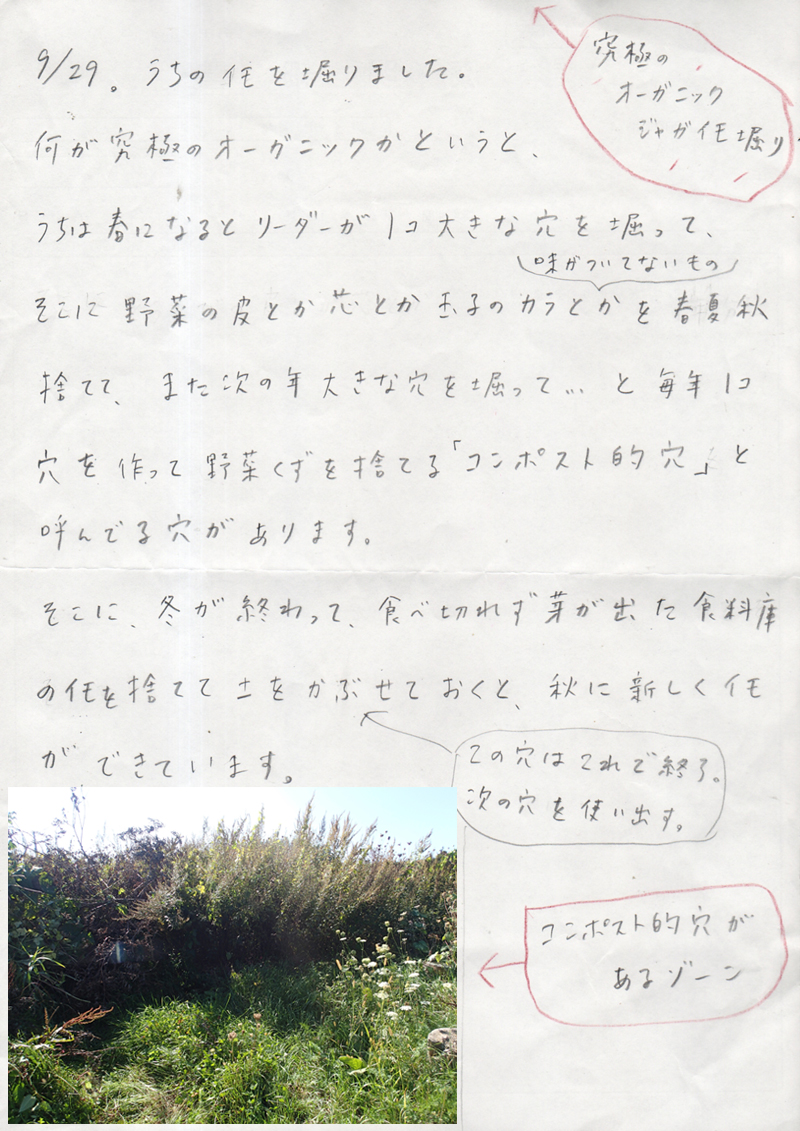 究極の
オーガニック
ジャガイモ堀り
9/29。うちのイモを堀りました。
何が究極のオーガニックかというと、
うちは春になるとリーダーが1コ大きな穴を堀って、
味がついてないもの
そこに野菜の皮とか芯とか玉子のカラとかを春夏秋
捨てて、また次の年大きな穴を堀って… と毎年1コ
穴を作って野菜くずを捨てる「コンポスト的穴」と
呼んでる穴があります。
そこに、冬が終わって、食べ切れず芽が出た食料庫
のイモを捨てて土をかぶせておくと、秋に新しくイモ
ができています。
この穴はこれで終了。
次の穴を使い出す。
コンポスト的穴が
あるゾーン